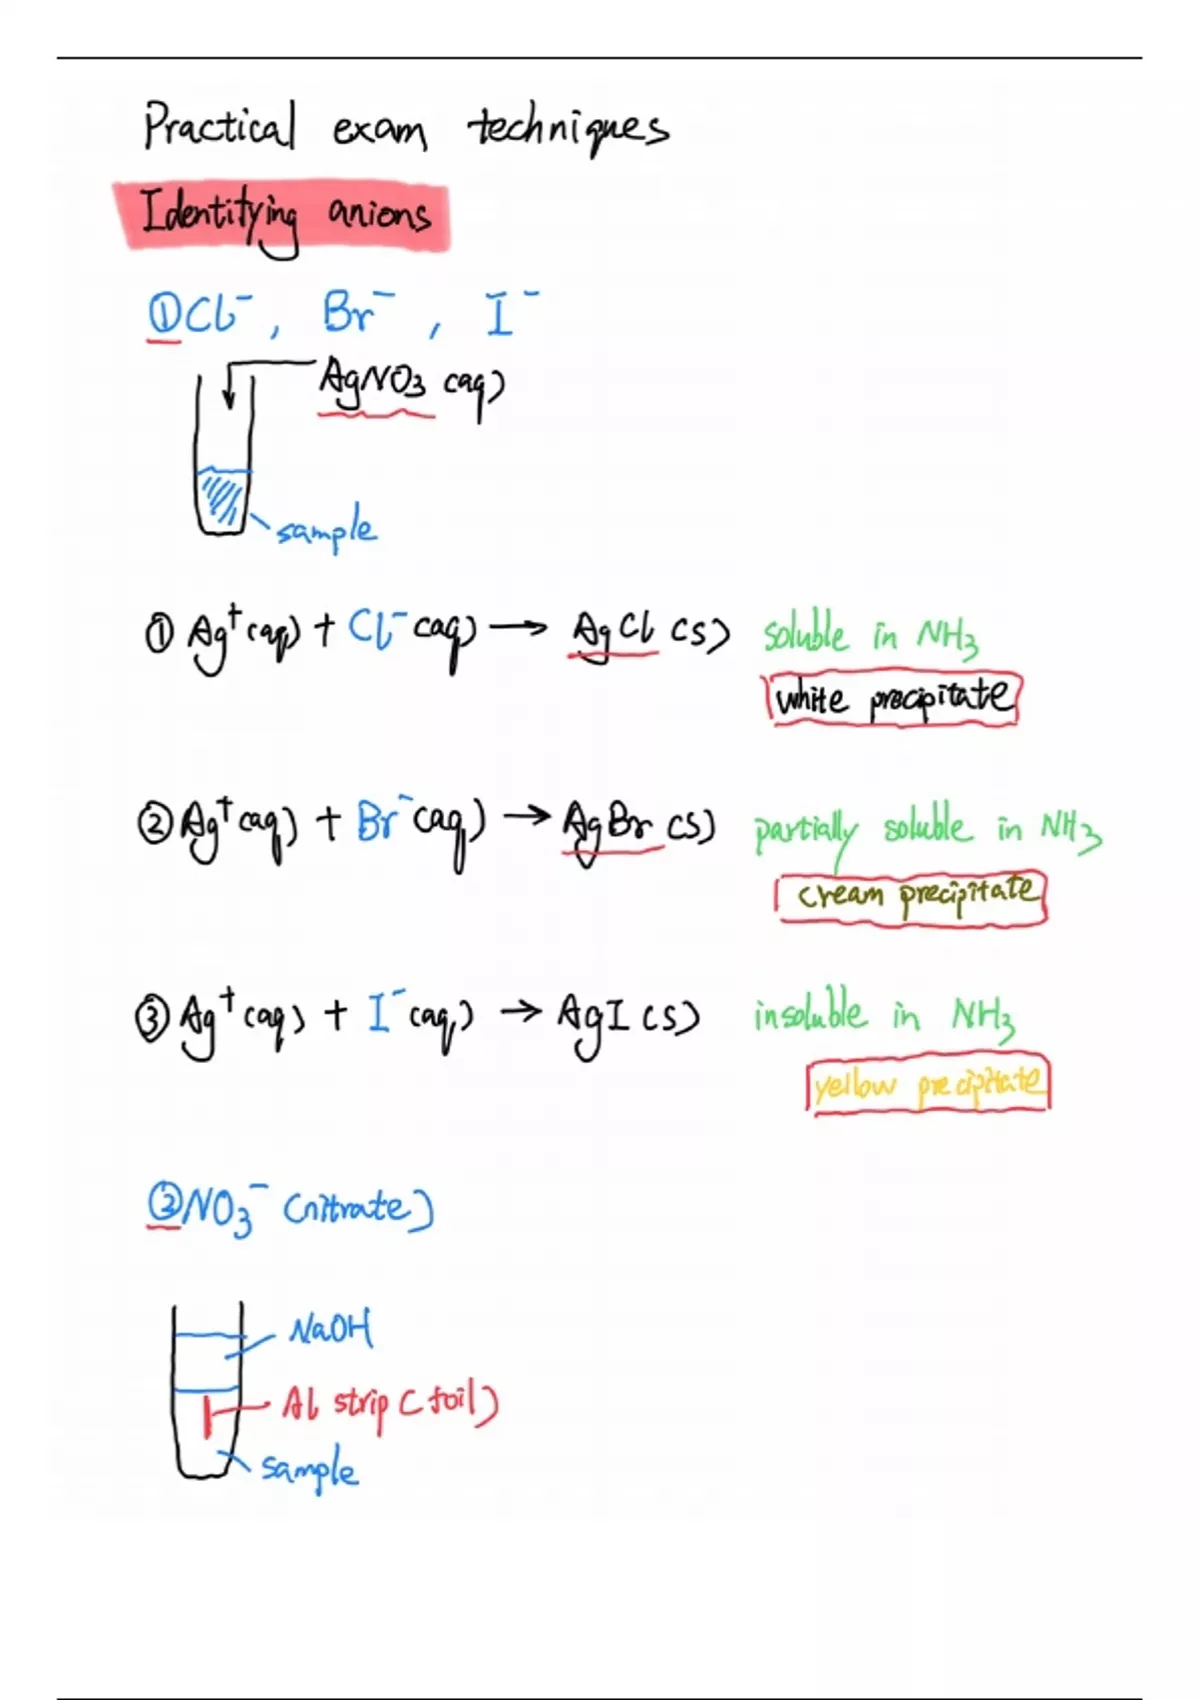 Practical exam techniques
Identifying anions
①Cl⁻, Br⁻, I⁻
AgNO₃ (aq)
sample
① Ag⁺(aq) + Cl⁻(aq) → AgCl (s) soluble in NH₃
white precipitate
② Ag⁺(aq) + Br⁻(aq) → AgBr (s) partially soluble in NH₃
cream precipitate
③ Ag⁺(aq) + I⁻(aq) → AgI (s) insoluble in NH₃
yellow precipitate
②NO₃⁻ (nitrate)
NaOH
Al strip (foil)
sample